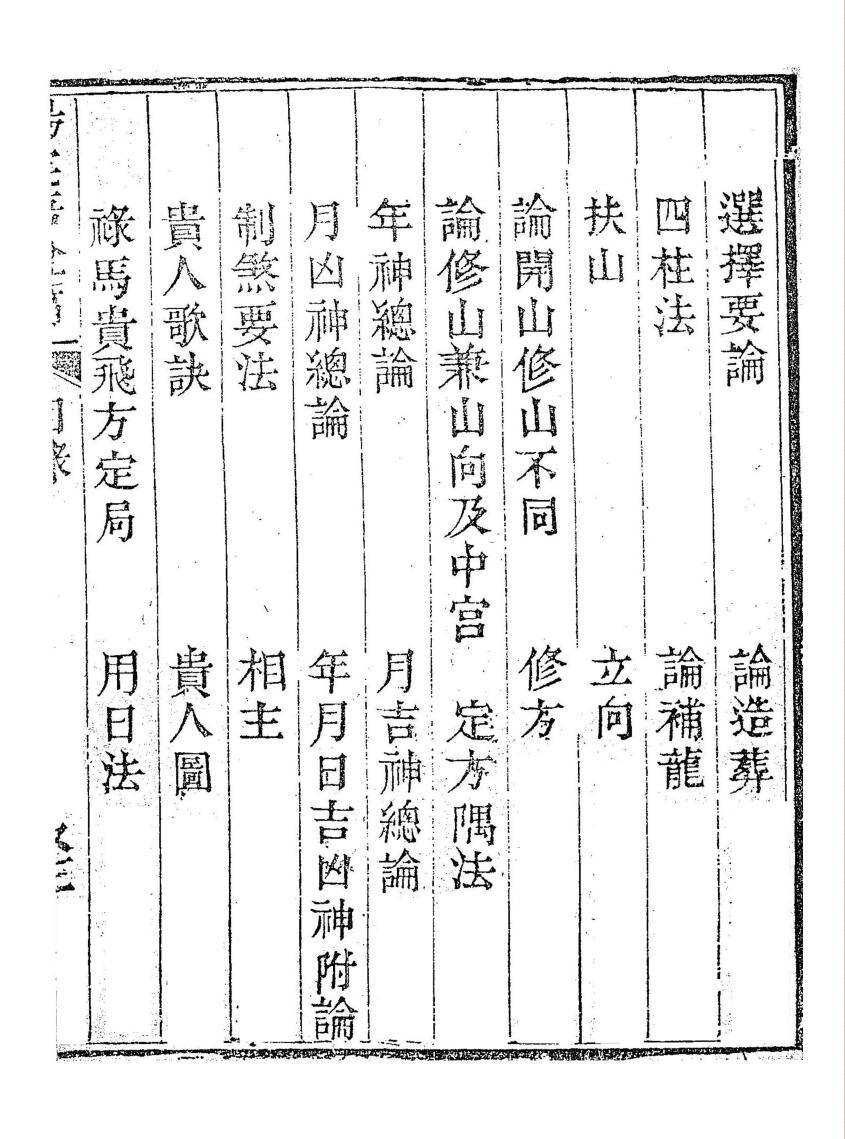 選擇要論 論造葬
四柱法 論補龍
扶山 立向
論開山修山不同 修方
論修山兼山向及中宮 定方隅法
年神總論 月吉神總論
月凶神總論 年月日吉凶神附論
制煞要法 相主
貴人歌訣 貴人圖
祿馬貴飛方定局 用日法
目錄